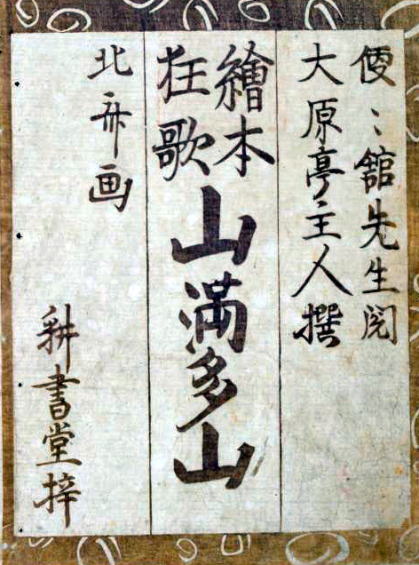 便〻館先生閲
大原亭主人撰
繪本
狂歌
山満多山
北斎画
耕書堂梓